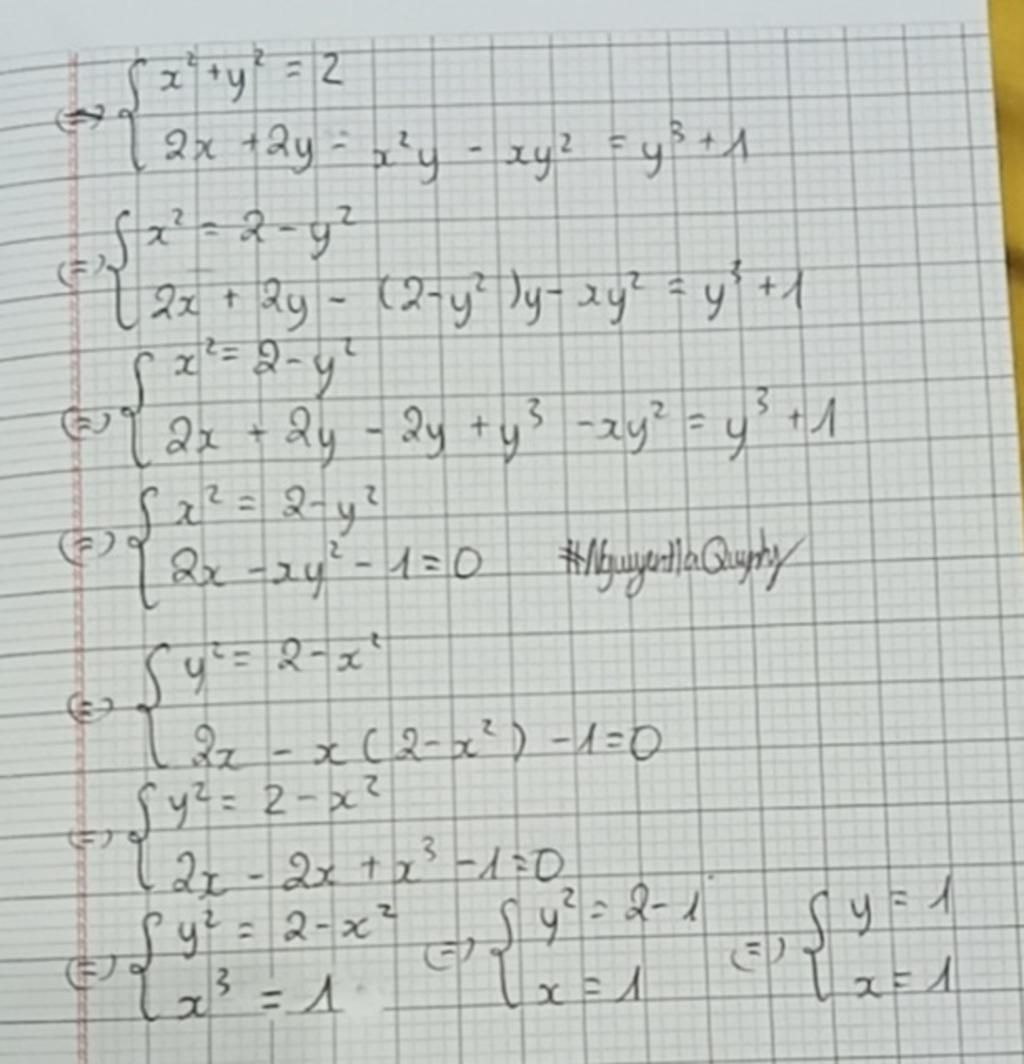 ⇔ { x² + y² = 2
2x + 2y = x²y - xy² = y³ + 1
⇔ { x² = 2 - y²
2x + 2y - (2-y²)y - xy² = y³ + 1
⇔ { x² = 2 - y²
2x + 2y - 2y + y³ - xy² = y³ + 1
⇔ { x² = 2 - y²
2x - xy² - 1 = 0
⇔ { y² = 2 - x²
2x - x(2-x²) - 1 = 0
⇔ { y² = 2 - x²
2x - 2x + x³ - 1 = 0
⇔ { y² = 2 - x² ⇔ { y² = 2 - 1 ⇔ { y = 1
x³ = 1 x = 1 x = 1